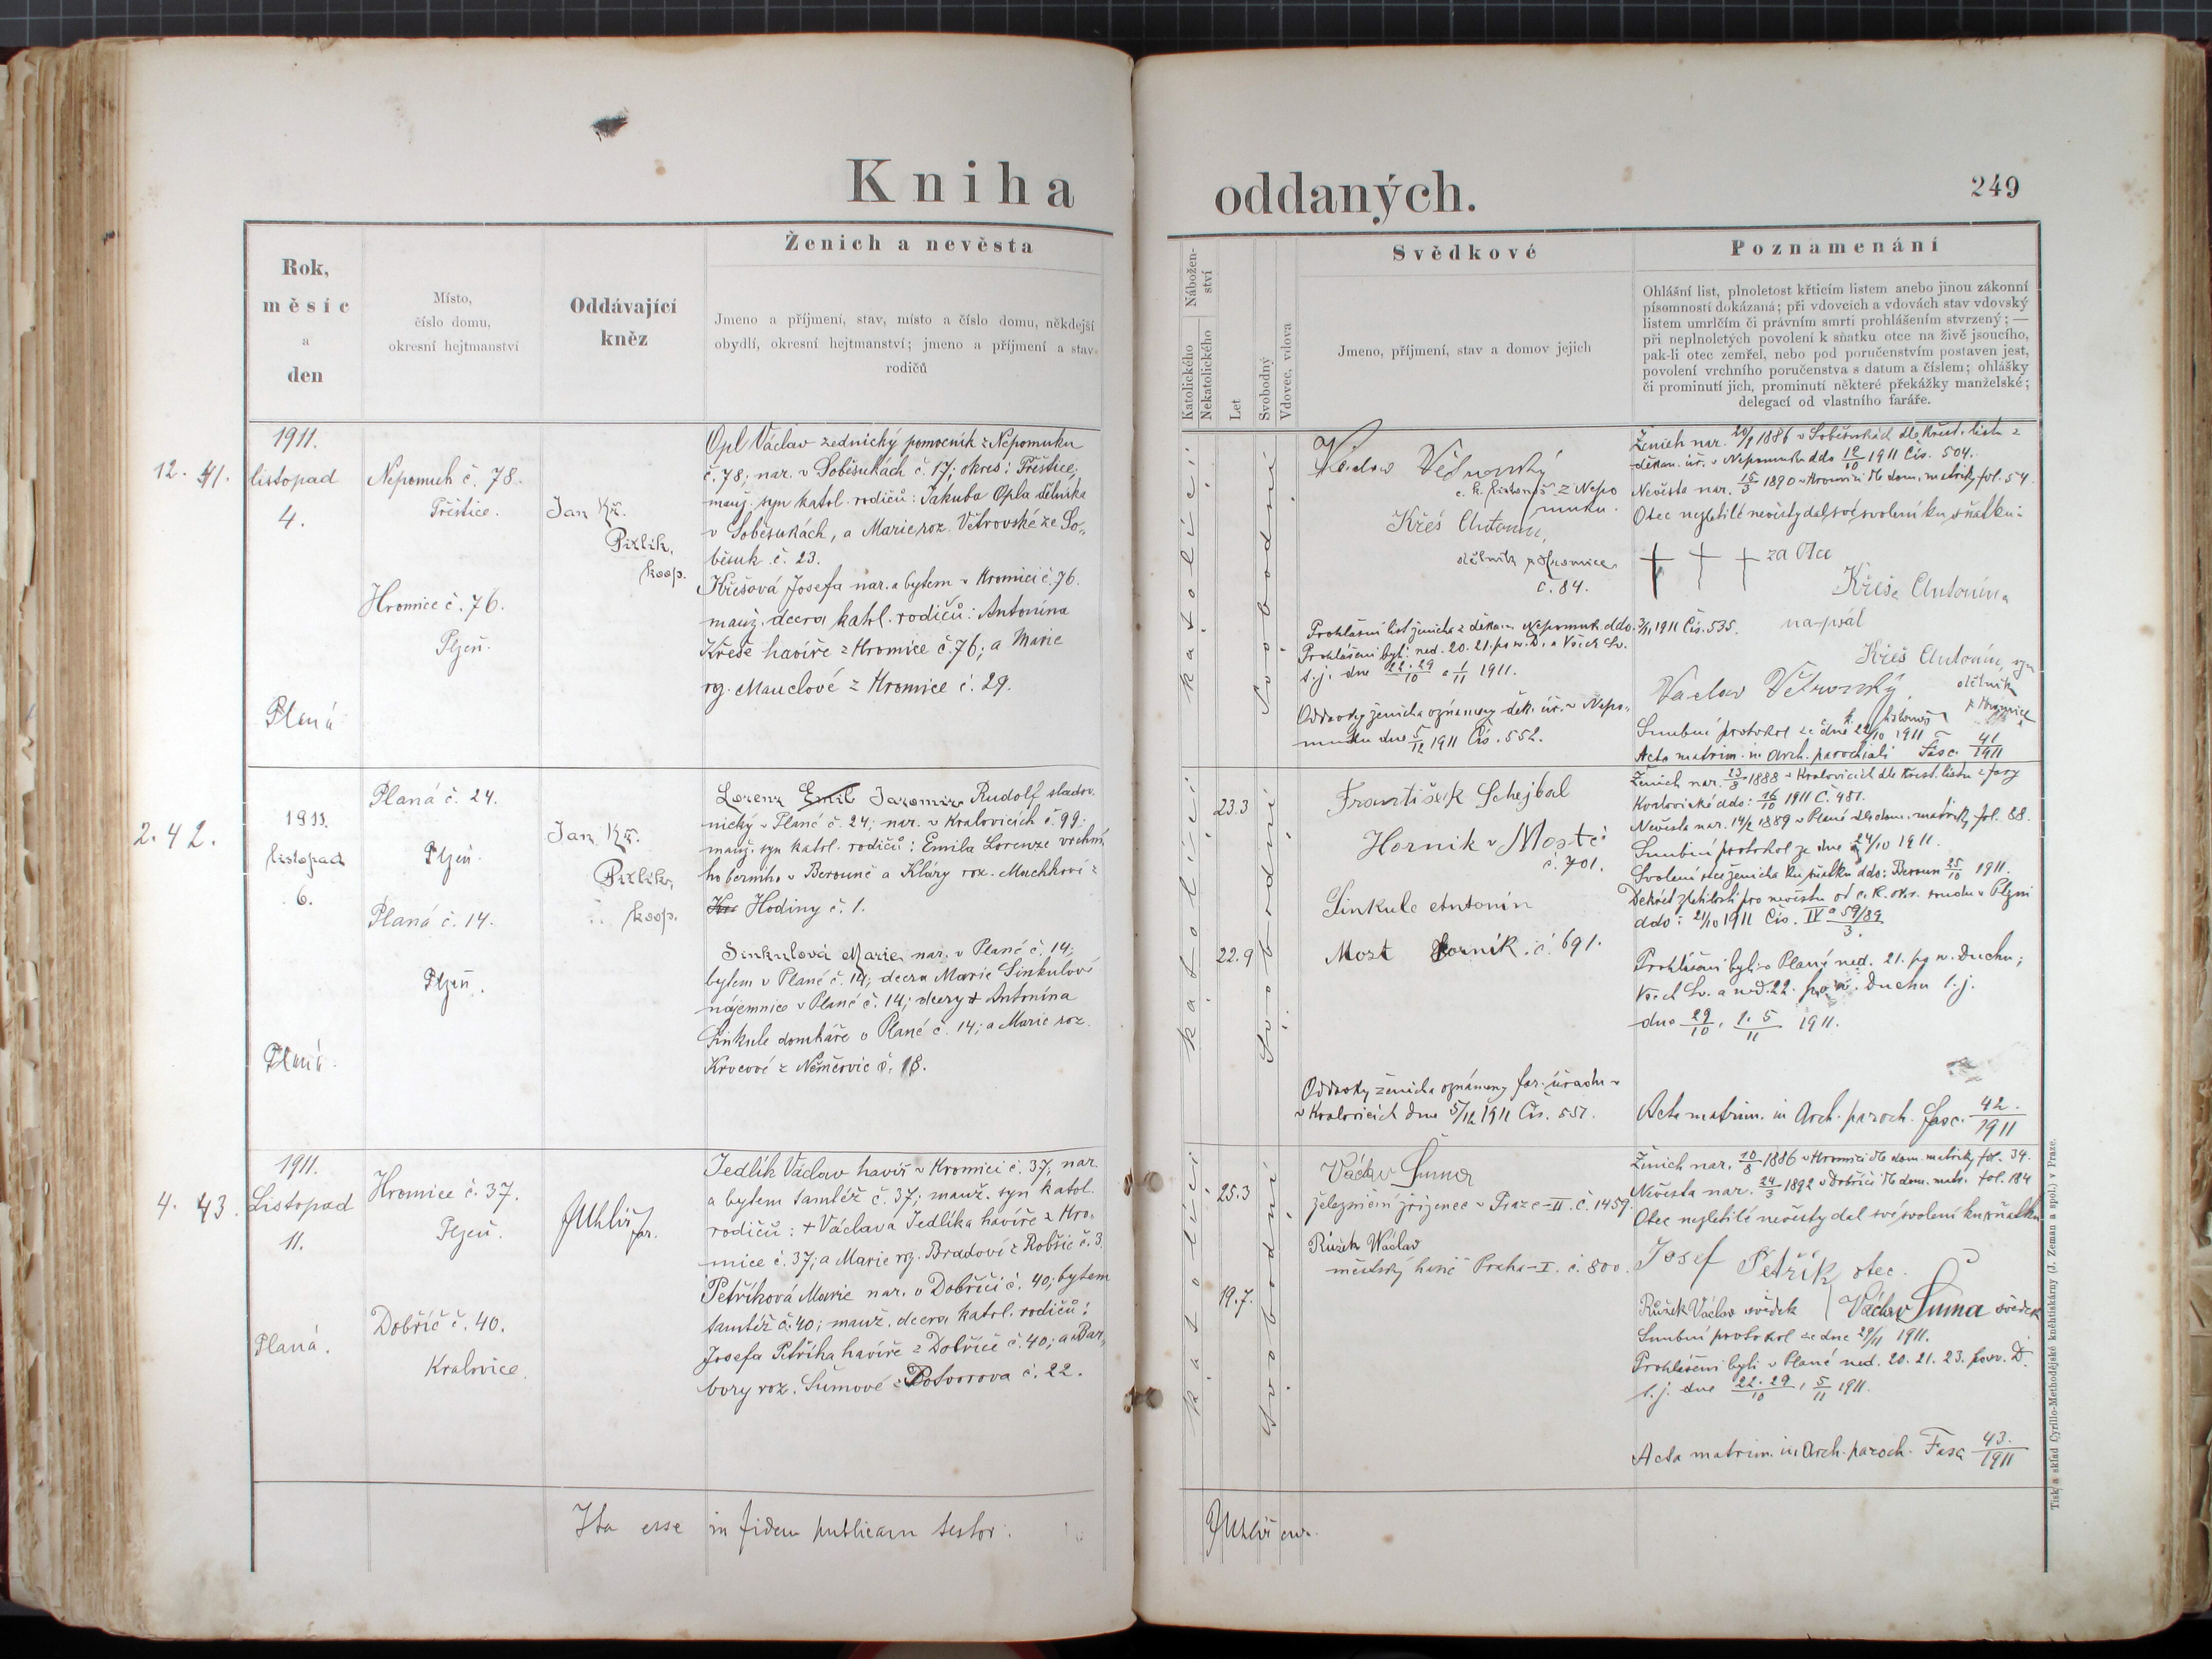 Kniha oddaných.
249
Rok,
měsíc
a
den
Místo,
číslo domu,
okresní hejtmanství
Oddávající
kněz
Ženich a nevěsta
Jmeno a příjmení, stav, místo a číslo domu, někdejší
obydlí, okresní hejtmanství; jmeno a příjmení a stav
rodičů
Nábožen-
ství
Katolického
Nekatolického
Let
Svobodný
Vdovec, vdova
Svědkové
Jmeno, příjmení, stav a domov jejich
Poznamenání
Ohlášní list, plnoletost křticím listem anebo jinou zákonní
písemností dokázaná; při vdovcích a vdovách stav vdovský
listem umrlčím či právním smrti prohlášením stvrzený; —
při neplnoletých povolení k sňatku otce na živě jsoucího,
pak-li otec zemřel, nebo pod poručenstvím postaven jest,
povolení vrchního poručenstva s datum a číslem; ohlášky
či prominutí jich, prominutí některé překážky manželské;
delegací od vlastního faráře.
12. 41.
1911.
listopad
4.
Planá
Nepomuk č. 78.
Přeštice.
Hromice č. 76.
Plzeň.
Jan Kř.
Pixlík,
koop.
Opl Václav zednický pomocník z Nepomuku
č. 78; nar. v Soběsukách č. 17; okres: Přeštice,
manž. syn katol. rodičů: Jakuba Opla dělníka
v Soběsukách, a Marie roz. Větrovské ze So-
běsuk č. 23.
Křešová Josefa nar. a bytem v Hromici č. 76.
manž. dcera katol. rodičů: Antonína
Křeše havíře z Hromice č. 76; a Marie
roz. Mauclové z Hromice č. 29.
katolíci
svobodní
Václav Větrovský
c. k. listonoš z Nepo
muku.
Křeš Antonín,
dělník z Hromice
č. 84.
Prohlášní list ženicha z děkan. Nepomuk ddo. 3/11 1911 Čís. 535.
Prohlášeni byli: ned. 20. 21. po sv. D. a Všech Sv.
t. j. dne 22. 29/10 a 1/11 1911.
Oddavky ženicha oznámeny děk. úř. v Nepo-
muku dne 5/12 1911 Čís. 552.
Ženich nar. 20/1 1886 v Soběsukách dle křest. listu z
děkan. úř. v Nepomuku ddo 12/10 1911 Čís. 504.
Nevěsta nar. 15/3 1890 v Hromici dle dom. matriky fol. 54.
Otec nezletilé nevěsty dal své svolení ku sňatku:
† † † za Otce
Křeše Antonína
napsál
Křeš Antonín, syn
dělník
z Hromice
Václav Větrovský,
k. listonoš
Snubní protokol ze dne 22/10 1911
Acta matrim. in Arch. parochiali Fasc. 41/1911
2. 42.
1911.
listopad
6.
Planá
Planá č. 24.
Plzeň.
Planá č. 14.
Plzeň.
Jan Kř.
Pixlík,
koop.
Lorenz Emil Jaromír Rudolf sladov-
nický v Plané č. 24; nar. v Kralovicích č. 99;
manž. syn katol. rodičů: Emila Lorenze vrchní-
ho berního v Berouně a Kláry roz. Muchkové z
Hodiny č. 1.
Sinkulová Marie nar. v Plané č. 14;
bytem v Plané č. 14; dcera Marie Sinkulové
nájemnice v Plané č. 14; dcery † Antonína
Sinkule domkáře v Plané č. 14; a Marie roz.
Krocové z Němčovic č. 18.
katolíci
23.3
22.9
svobodní
František Schejbal
Horník v Mostě
č. 701.
Sinkule Antonín
Most Horník č. 691.
Oddavky ženicha oznámeny far. úřadu v
v Kralovicích dne 5/12 1911 Čís. 551.
Ženich nar. 23/8 1888 v Kralovicích dle křest. listu z fary
Kralovické ddo: 16/10 1911 Č. 481.
Nevěsta nar. 14/2 1889 v Plané dle dom. matriky fol. 88.
Snubní protokol ze dne 24/10 1911.
Svolení otce ženicha ku sňatku ddo: Beroun 25/10 1911.
Dekret zletilosti pro nevěstu od c. k. okr. soudu v Plzni
ddo: 21/10 1911 Čís. IV a 59/89/3.
Prohlášeni byli v Plané ned. 21. po sv. Duchu;
Všech Sv. a ned. 22. po sv. Duchu t. j.
dne 29/10, 1. 5/11 1911.
Acta matrim. in Arch. paroch. Fasc. 42./1911
4. 43.
1911.
Listopad
11.
Planá.
Hromice č. 37.
Plzeň.
Dobříč č. 40.
Kralovice.
JUhlíř
far.
Jedlík Václav havíř v Hromici č. 37, nar.
a bytem tamtéž č. 37; manž. syn katol.
rodičů: † Václava Jedlíka havíře z Hro-
mice č. 37; a Marie roz. Bradové z Robšic č. 3.
Petříková Marie nar. v Dobříči č. 40; bytem
tamtéž č. 40; manž. dcera katol. rodičů:
Josefa Petříka havíře z Dobříče č. 40; a Bar-
bory roz. Šumové z Potvorova č. 22.
katolíci
25.3
19.7.
svobodní
Václav Šuma
železniční zřízenec v Praze-II. č. 1459.
Růžek Wáclav
městský hasič Praha-I. č. 800.
Ženich nar. 10/8 1886 v Hromici dle dom. matriky fol. 34.
Nevěsta nar. 24/3 1892 v Dobříči dle dom. matr. fol. 184
Otec nezletilé nevěsty dal své svolení ku sňatku
Josef Petřík otec.
Růžek Václav svědek
Václav Šuma svědek
Snubní protokol ze dne 29/11 1911.
Prohlášeni byli v Plané ned. 20. 21. 23. po sv. D.
t. j. dne 22. 29/10, 5/11 1911.
Acta matrim. in Arch. paroch. Fasc. 43./1911
Ita esse in fidem publicam testor:
JUhlíř
Tisk a sklad Cyrillo-Methodějské kněhtiskárny (J. Zeman a spol.) v Praze.